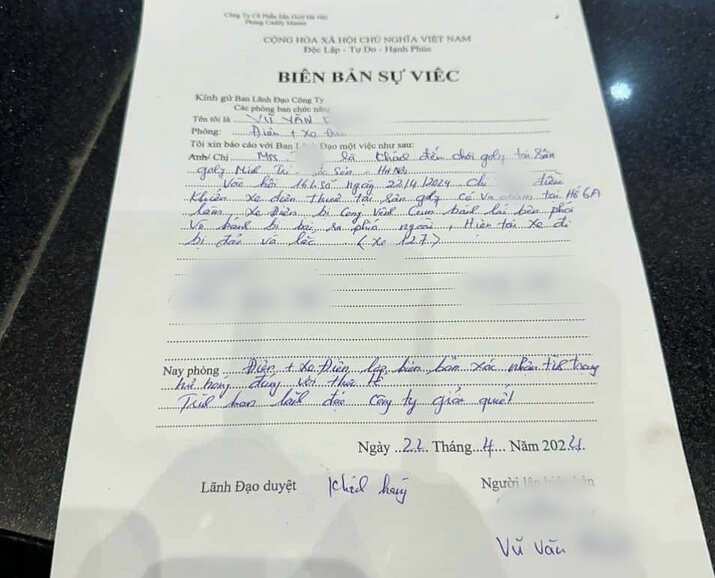 Công Ty Cổ Phần Sân Golf Hà Nội
Phòng Caddy Master
CỘNG HÒA XÃ HỘI CHỦ NGHĨA VIỆT NAM
Độc Lập - Tự Do - Hạnh Phúc
BIÊN BẢN SỰ VIỆC
Kính gử Ban Lãnh Đạo Công Ty
Các phòng ban chức năng
Tên tôi là VŨ VĂN
Phòng: Điện + Xe Điện
Tôi xin báo cáo với Ban Đạo một việc như sau:
Anh/ Chị Mrs. là khách đến chơi golf tại Sân
golf Minh Trí - Sóc Sơn - Hà Nội
Vào hồi 16h50 ngày 22/4/2024 chị điều
khiển xe điện thuê tại sân golf có va tại Hố 6A
làm xe Điện bị Cong Vênh Cụm bánh lái bên phải
Vỡ bánh bị ra phía ngoài, Hiện tại xe đi
bị đảo và lắc (xe 127)
Nay phòng Điện + Xe Điện lập biên bản xác nhận tình trạng
hư hỏng đúng với thực tế
Trình ban lãnh đạo công ty giải quyết
Ngày 22 Tháng 4 Năm 2024
Lãnh Đạo duyệt Khách hàng Người lập biên bản
Vũ Văn